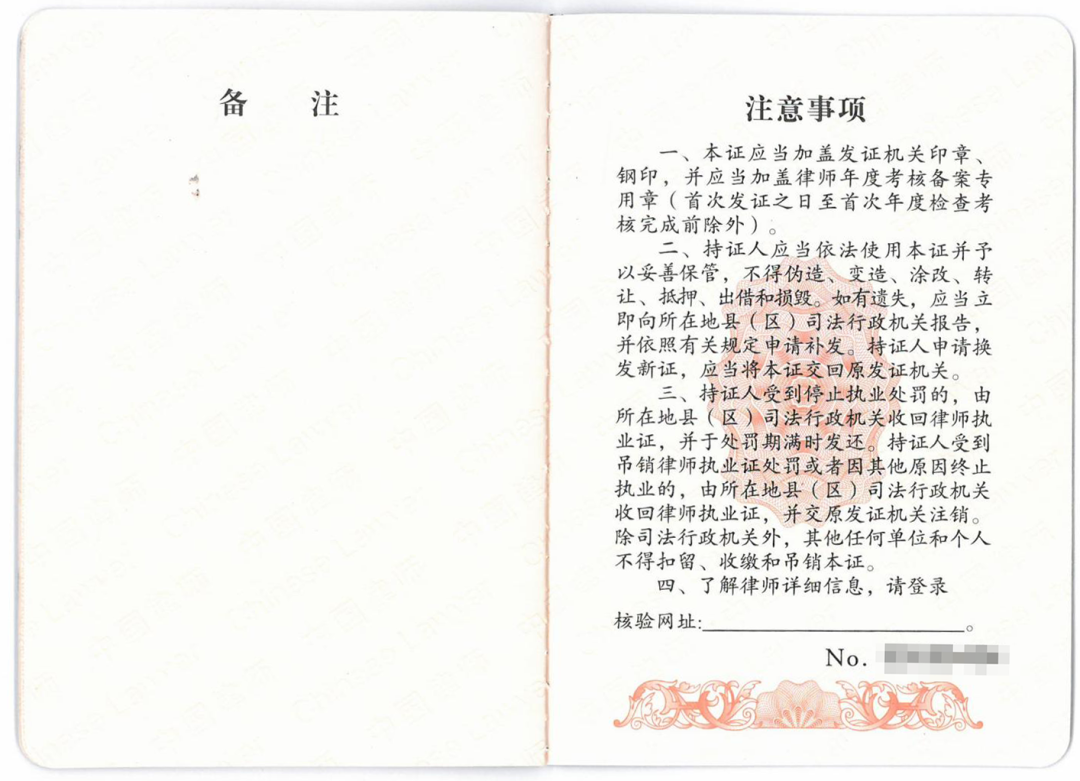 备 注
注意事项
一、本证应当加盖发证机关印章、
钢印，并应当加盖律师年度考核备案专
用章（首次发证之日至首次年度检查考
核完成前除外）。
二、持证人应当依法使用本证并予
以妥善保管，不得伪造、变造、涂改、转
让、抵押、出借和损毁。如有遗失，应当立
即向所在地县（区）司法行政机关报告，
并依照有关规定申请补发。持证人申请换
发新证，应当将本证交回原发证机关。
三、持证人受到停止执业处罚的，由
所在地县（区）司法行政机关收回律师执
业证，并于处罚期满时发还。持证人受到
吊销律师执业证处罚或者因其他原因终止
执业的，由所在地县（区）司法行政机关
收回律师执业证，并交原发证机关注销。
除司法行政机关外，其他任何单位和个人
不得扣留、收缴和吊销本证。
四、了解律师详细信息，请登录
核验网址:____________________。
No.